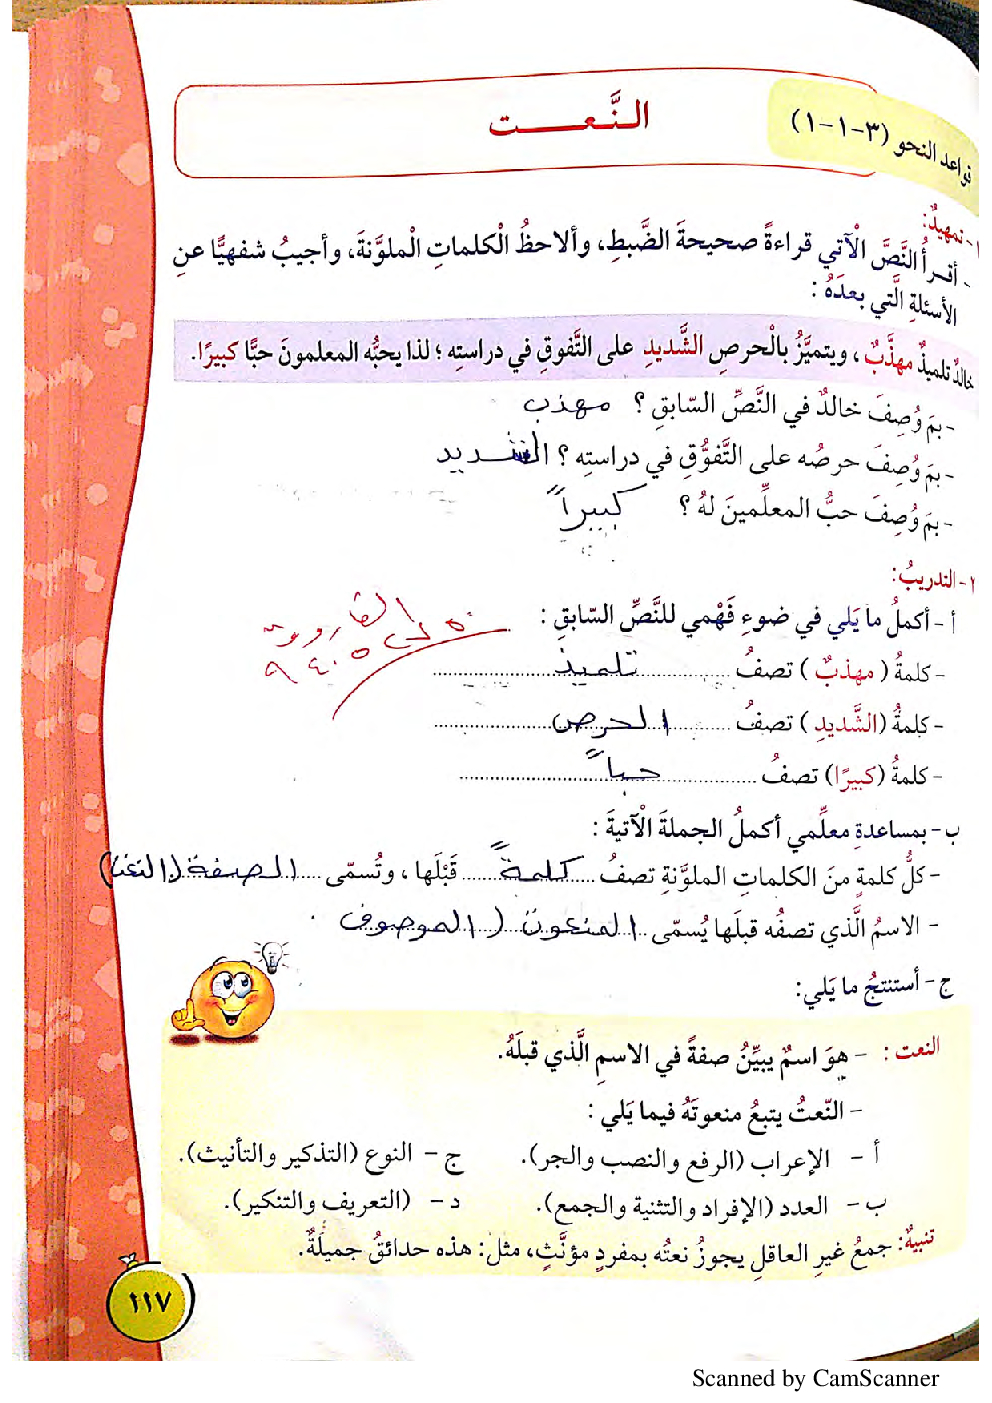 قواعد النحو (٣-١-١)
النَّعـــــت
١- تمهيدٌ:
- أقرأُ النَّصَّ الْآتي قراءةً صحيحةَ الضَّبطِ، وألاحظُ الْكلماتِ الْملوَّنةَ، وأجيبُ شفهيًّا عنِ
الأسئلةِ الَّتي بعدَهُ :
خالدٌ تلميذٌ مهذَّبٌ، ويتميَّزُ بالْحرصِ الشَّديدِ على التَّفوقِ في دراستِه ؛ لذا يحبُّه المعلمونَ حبًّا كبيرًا.
- بمَ وُصِفَ خالدٌ في النَّصِّ السّابقِ ؟ مهذب
- بمَ وُصِفَ حرصُه على التَّفوُّقِ في دراستِه ؟ الشديد
- بمَ وُصِفَ حبُّ المعلِّمينَ لهُ ؟ كبيراً
٢- التدريبُ:
أ - أكملُ ما يَلي في ضوءِ فَهْمي للنَّصِّ السّابقِ :
- كلمةُ ( مهذبٌ ) تصفُ ........ تلميذ ........
- كلمةُ (الشَّديدِ ) تصفُ ........ الحرص ........
- كلمةُ (كبيرًا) تصفُ ........ حباً ........
ب - بمساعدةِ معلِّمي أكملُ الجملةَ الْآتيةَ :
- كلُّ كلمةٍ منَ الكلماتِ الملوَّنةِ تصفُ .... كلمةً .... قَبْلَها ، وتُسمّى .... الصفة (النعت)
- الاسمُ الَّذي تصفُه قبلَها يُسمّى .... المنعوت ( الموصوف .
ج - أستنتجُ ما يَلي:
النعت : - هوَ اسمٌ يبيِّنُ صفةً في الاسمِ الَّذي قبلَهُ.
- النّعتُ يتبعُ منعوتَهُ فيما يَلي :
أ - الإعراب (الرفع والنصب والجر). ج - النوع (التذكير والتأنيث).
ب - العدد (الإفراد والتثنية والجمع). د - (التعريف والتنكير).
تنبيهٌ: جمعُ غيرِ العاقلِ يجوزُ نعتُه بمفردٍ مؤنَّثٍ، مثلُ: هذه حدائقُ جميلةٌ.
١١٧
Scanned by CamScanner